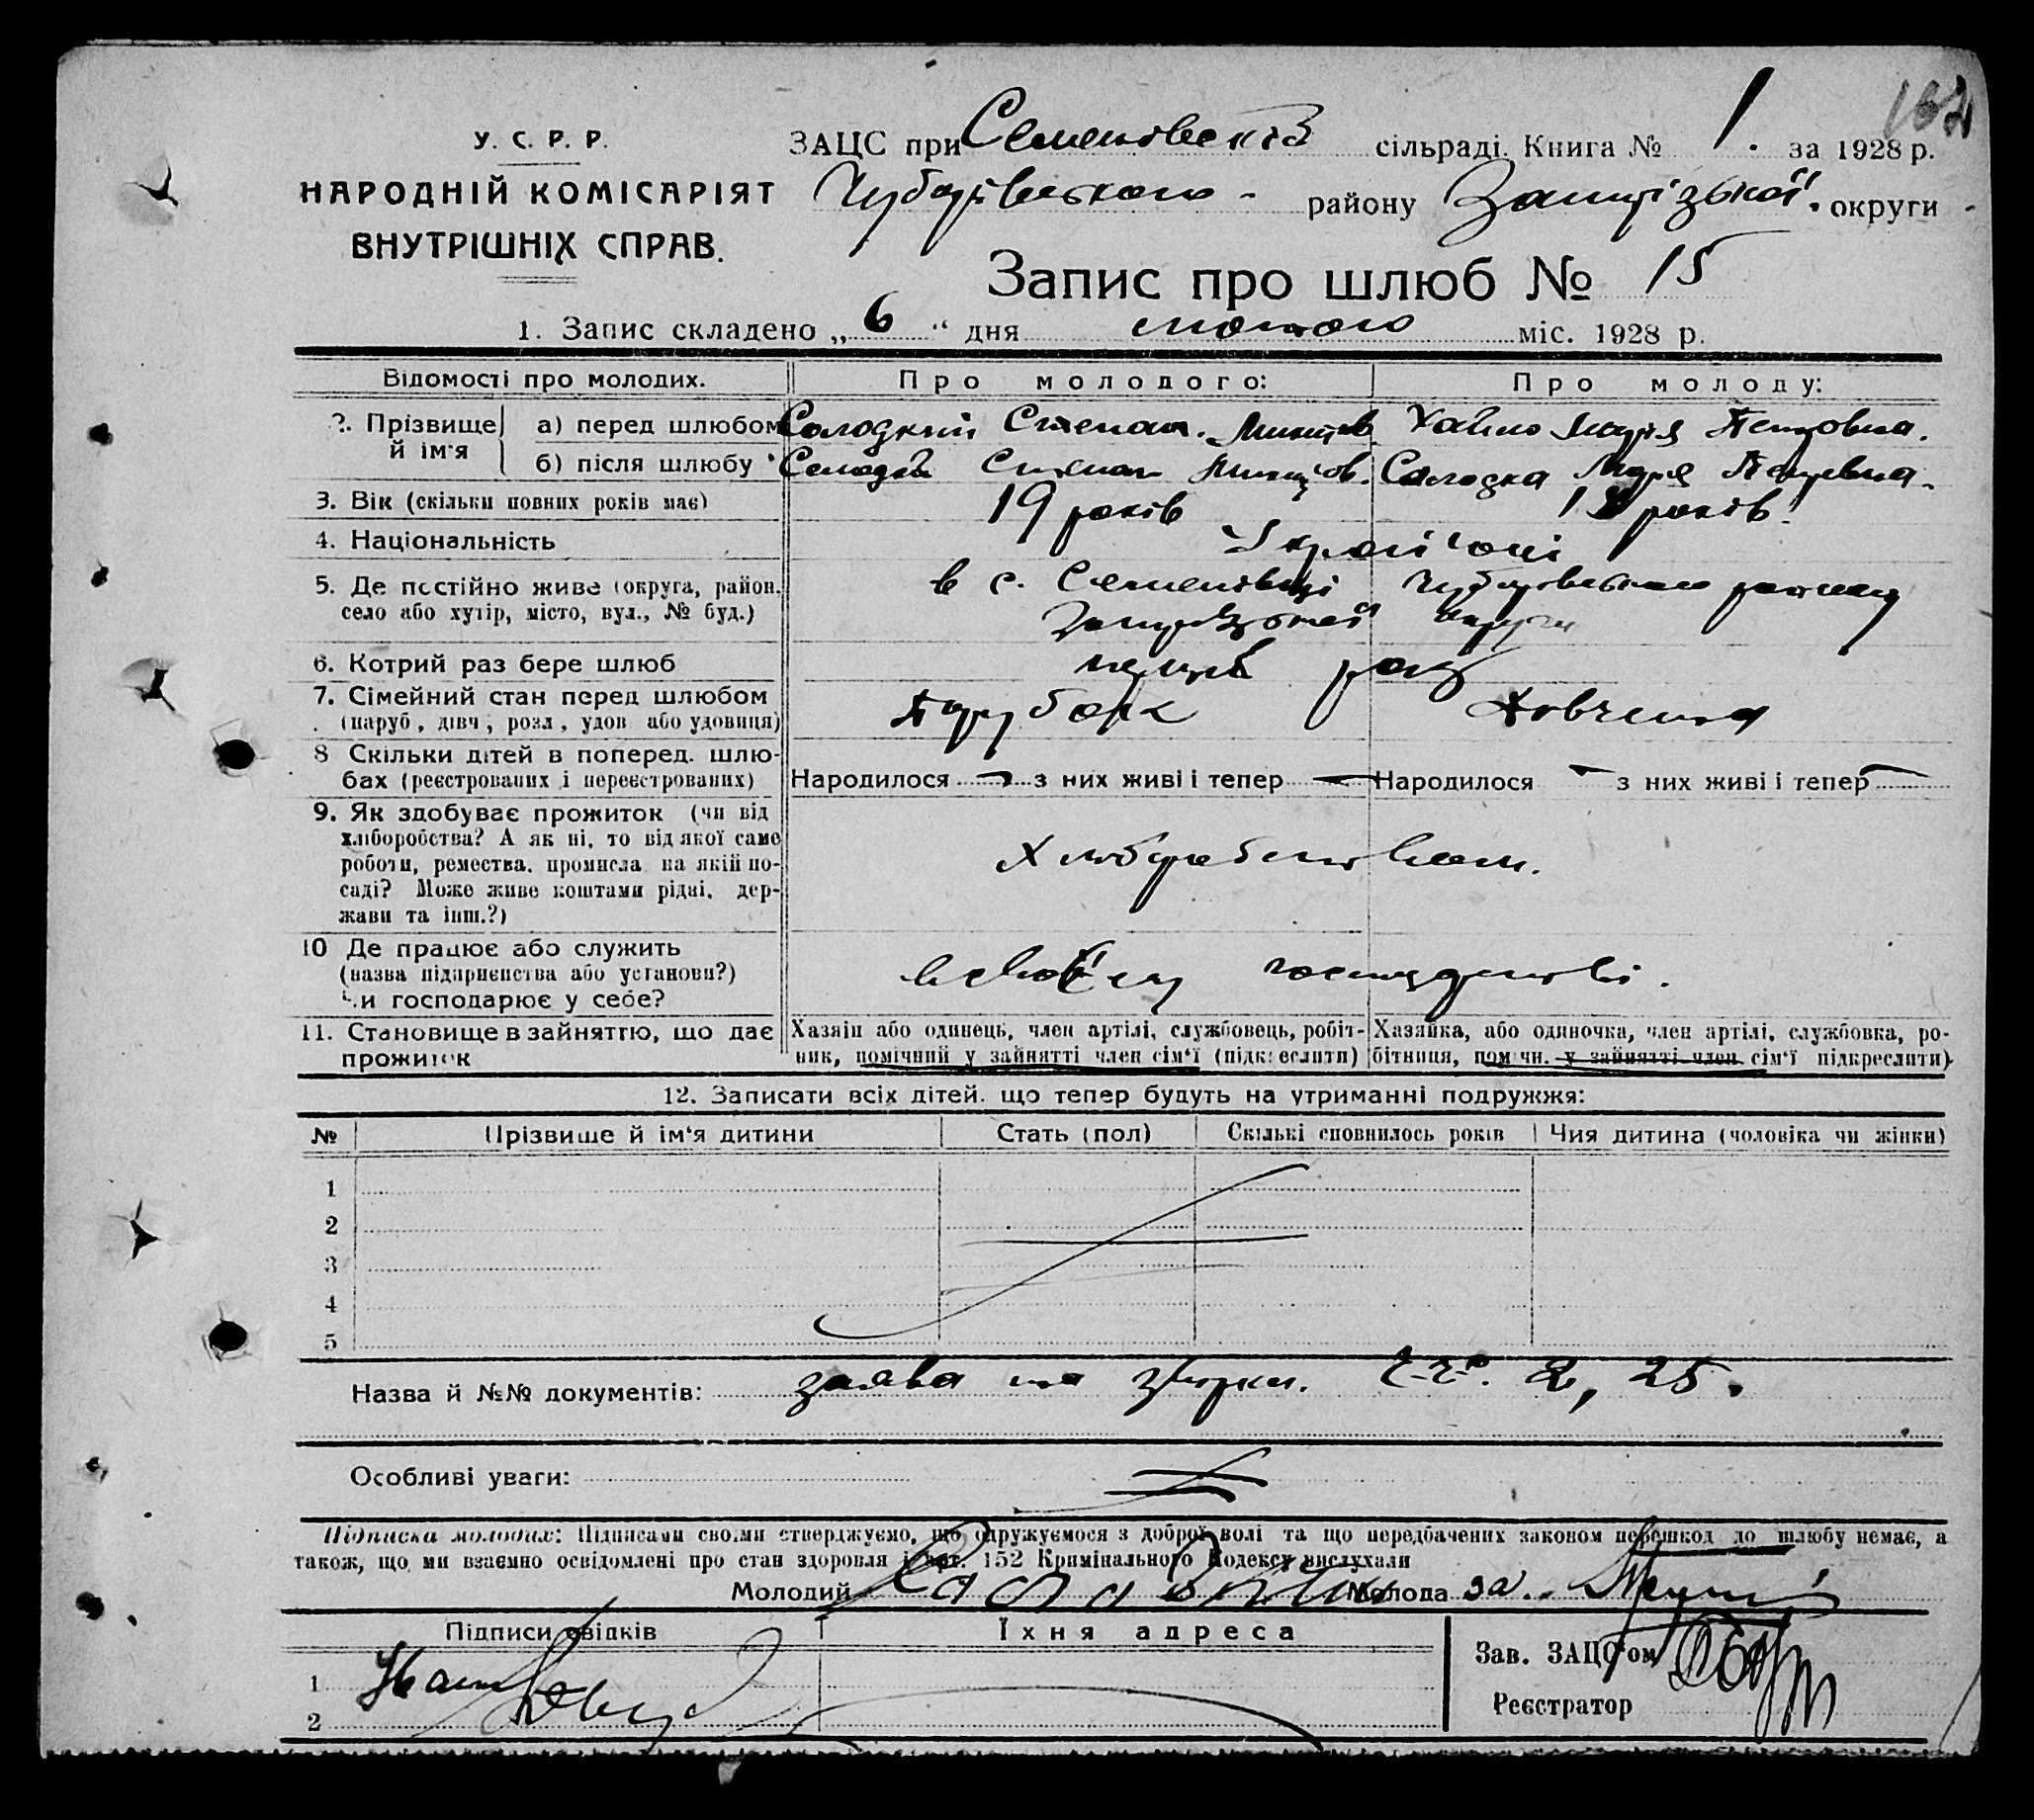 У. С. Р. Р.
НАРОДНІЙ КОМІСАРІЯТ
ВНУТРІШНІХ СПРАВ.
ЗАЦС при Семенівській сільраді. Книга № 1. за 1928 р.
Чубарівського району Запорізької округи
Запис про шлюб № 15
1. Запис складено „ 6 “ дня лютого міс. 1928 р.
Відомості про молодих. Про молодого: Про молоду:
2. Прізвище й ім'я а) перед шлюбом Солодкий Степан Хайло Марія Петровна.
б) після шлюбу Степан Солодка Марія Петровна.
3. Вік (скільки повних років має) 19 років років.
4. Національність Українці
5. Де постійно живе (округа, район, в с. Семенівці Чубарівського району
село або хутір, місто, вул., № буд.) Запорізької округи
6. Котрий раз бере шлюб перший раз
7. Сімейний стан перед шлюбом Парубок Дівчина
(паруб., дівч., розл., удов. або удовиця)
8 Скільки дітей в поперед. шлю-
бах (реєстрованих і нереєстрованих) Народилося — з них живі і тепер — Народилося — з них живі і тепер —
9. Як здобуває прожиток (чи від
хліборобства? А як ні, то від якої саме
роботи, ремества, промисла на якій по-
саді? Може живе коштами рідні, дер-
жави та інш.?)
Хліборобством.
10 Де працює або служить
(назва підприємства або установи?)
Чи господарює у себе?
в своїм господарстві.
11. Становище в зайняттю, що дає
прожиток
Хазяїн або одинець, член артілі, службовець, робіт-
ник, помічний у зайнятті член сім'ї (підкреслити)
Хазяйка, або одиночка, член артілі, службовка, ро-
бітниця, помічн. у зайнятті член сім'ї підкреслити)
12. Записати всіх дітей, що тепер будуть на утриманні подружжя:
№ Прізвище й ім'я дитини Стать (пол) Скількі сповнилось років Чия дитина (чоловіка чи жінки)
1
2
3
4
5
Назва й №№ документів: заява та 2, 25.
Особливі уваги:
Підписка молодих: Підписами своїми стверджуємо, що одружуємося з доброї волі та що передбачених законом перешкод до шлюбу немає, а
також, що ми взаємно освідомлені про стан здоровля і арт. 152 Кримінального Кодексу вислухали
Молодий Молода за
Підписи свідків Їхня адреса
Зав. ЗАЦС'ом
1
Реєстратор
2